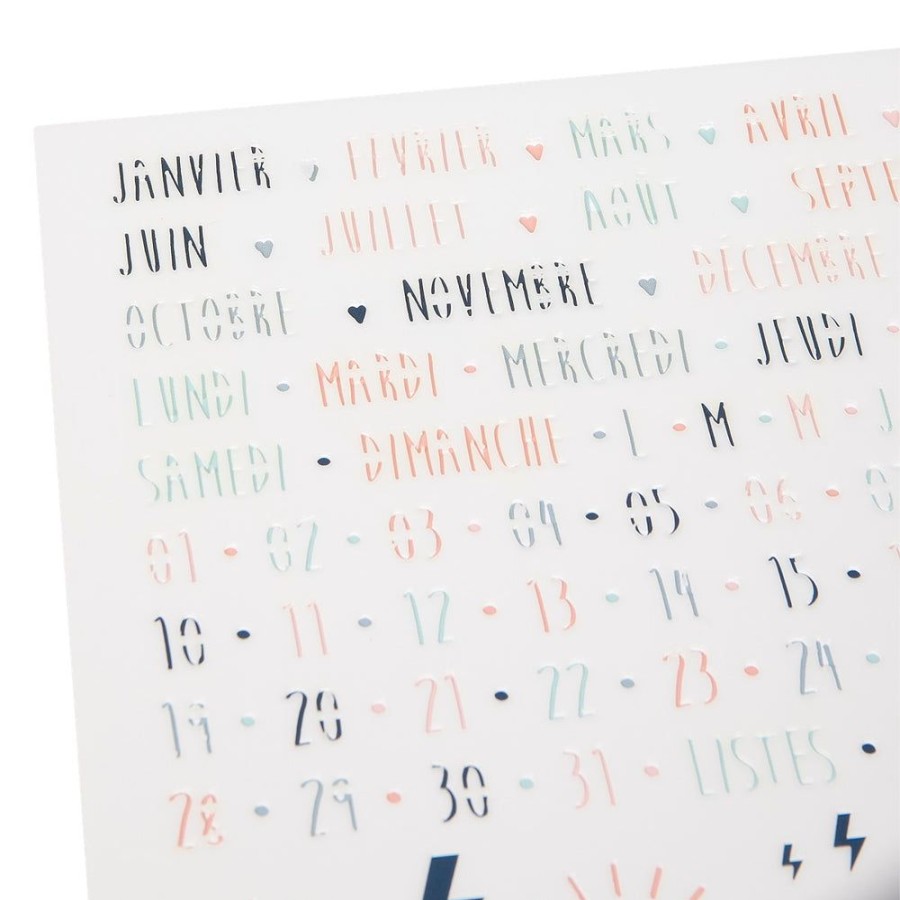 JANVIER FÉVRIER MARS AVRIL
JUIN JUILLET AOÛT SEPTE
OCTOBRE NOVEMBRE DÉCEMBRE
LUNDI • MARDI • MERCREDI • JEUDI •
SAMEDI • DIMANCHE • L • M • M • J
01 • 02 • 03 • 04 • 05 • 06 • 0
10 • 11 • 12 • 13 • 14 • 15 • 1
19 • 20 • 21 • 22 • 23 • 24 •
28 • 29 • 30 • 31 • LISTES •